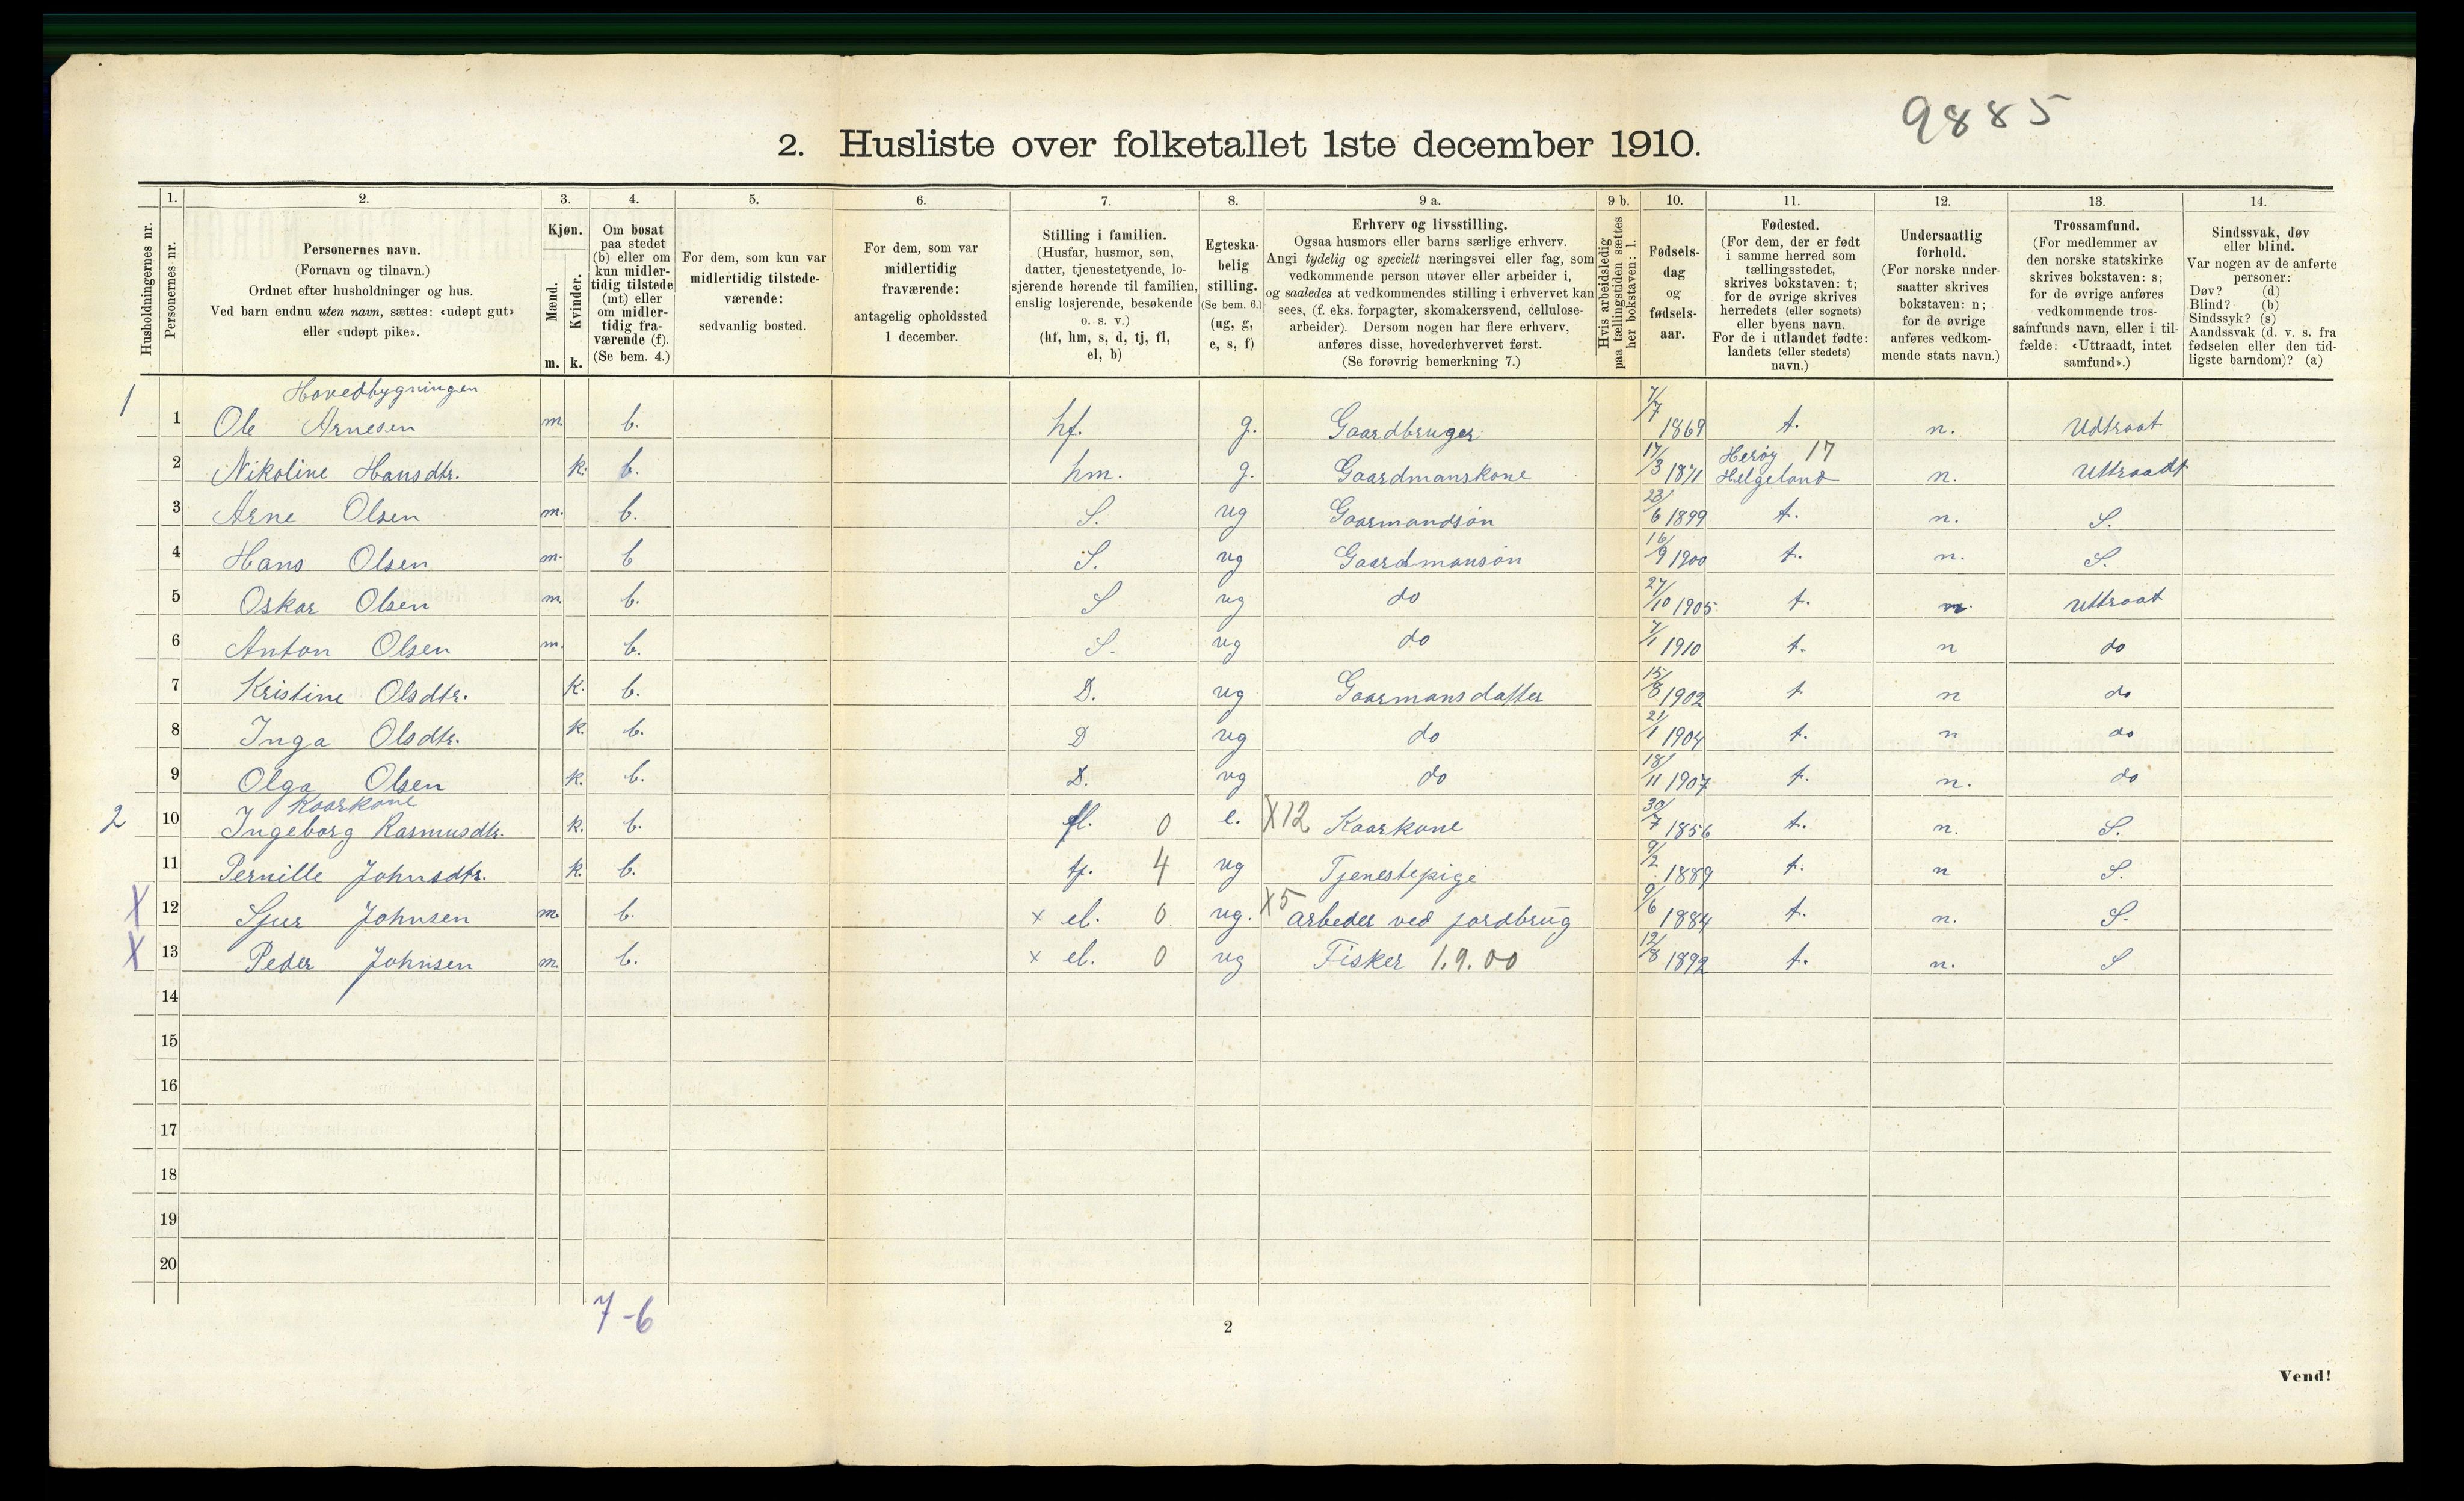 9885
2. Husliste over folketallet 1ste december 1910.
Husholdningernes nr.
1.
Personernes nr.
2.
Personernes navn.
(Fornavn og tilnavn.)
Ordnet efter husholdninger og hus.
Ved barn endnu uten navn, sættes: «udøpt gut»
eller «udøpt pike».
3.
Kjøn.
Mænd.
Kvinder.
m. k.
4.
Om bosat
paa stedet
(b) eller om
kun midler-
tidig tilstede
(mt) eller
om midler-
tidig fra-
værende (f).
(Se bem. 4.)
5.
For dem, som kun var
midlertidig tilstede-
værende:
sedvanlig bosted.
6.
For dem, som var
midlertidig
fraværende:
antagelig opholdssted
1 december.
7.
Stilling i familien.
(Husfar, husmor, søn,
datter, tjenestetyende, lo-
sjerende hørende til familien,
enslig losjerende, besøkende
o. s. v.)
(hf, hm, s, d, tj, fl,
el, b)
8.
Egteska-
belig
stilling.
(Se bem. 6.)
(ug, g,
e, s, f)
9 a.
Erhverv og livsstilling.
Ogsaa husmors eller barns særlige erhverv.
Angi tydelig og specielt næringsvei eller fag, som
vedkommende person utøver eller arbeider i,
og saaledes at vedkommendes stilling i erhvervet kan
sees, (f. eks. forpagter, skomakersvend, cellulose-
arbeider). Dersom nogen har flere erhverv,
anføres disse, hovederhvervet først.
(Se forøvrig bemerkning 7.)
9 b.
Hvis arbeidsledig
paa tællingstiden sættes
her bokstaven: l.
10.
Fødsels-
dag
og
fødsels-
aar.
11.
Fødested.
(For dem, der er født
i samme herred som
tællingsstedet,
skrives bokstaven: t;
for de øvrige skrives
herredets (eller sognets)
eller byens navn.
For de i utlandet fødte:
landets (eller stedets)
navn.)
12.
Undersaatlig
forhold.
(For norske under-
saatter skrives
bokstaven: n;
for de øvrige
anføres vedkom-
mende stats navn.)
13.
Trossamfund.
(For medlemmer av
den norske statskirke
skrives bokstaven: s;
for de øvrige anføres
vedkommende tros-
samfunds navn, eller i til-
fælde: «Uttraadt, intet
samfund».)
14.
Sindssvak, døv
eller blind.
Var nogen av de anførte
personer:
Døv? (d)
Blind? (b)
Sindssyk? (s)
Aandssvak (d. v. s. fra
fødselen eller den tid-
ligste barndom)? (a)
Hovedbygningen
1 1 Ole Arnesen m. b. hf. g. Gaardbruger 7/7 1869 t. n. Udtraat
2 Nikoline Hansdtr. k. b. hm. g. Gaardmanskone 17/3 1871 Herøy 17 Helgeland n. Uttraadt
3 Arne Olsen m. b. S. ug Gaarmandsøn 23/6 1899 t. n. S.
4 Hans Olsen m. b S. ug Gaardmansøn 16/9 1900 t. n. S.
5 Oskar Olsen m b. S ug do 27/10 1905 t. n. Uttraat
6 Anton Olsen m. b. S. ug do 7/1 1910 t. n do
7 Kristine Olsdtr. k. b. D. ug Gaarmansdatter 15/8 1902 t n do
8 Inga Olsdtr. k. b. D ug do 21/1 1904 t. n do
9 Olga Olsen k. b. D. ug do 18/11 1907 t. n. do
Kaarkone
2 10 Ingeborg Rasmusdtr. k. b. fl. 0 e. X12 Kaarkone 30/7 1856 t. n. S.
11 Pernille Johnsdtr. k. b. tj. 4 ug Tjenestepige 9/2 1889 t. n S.
X 12 Sjur Johnsen m. b. x el. 0 ug. X5 Arbeder ved jordbrug 9/6 1884 t. n. S.
X 13 Peder Johnsen m. b. x el. 0 ug Fisker 1.9.00 12/8 1892 t. n. S
14
15
16
17
18
19
20
7-6
2
Vend!